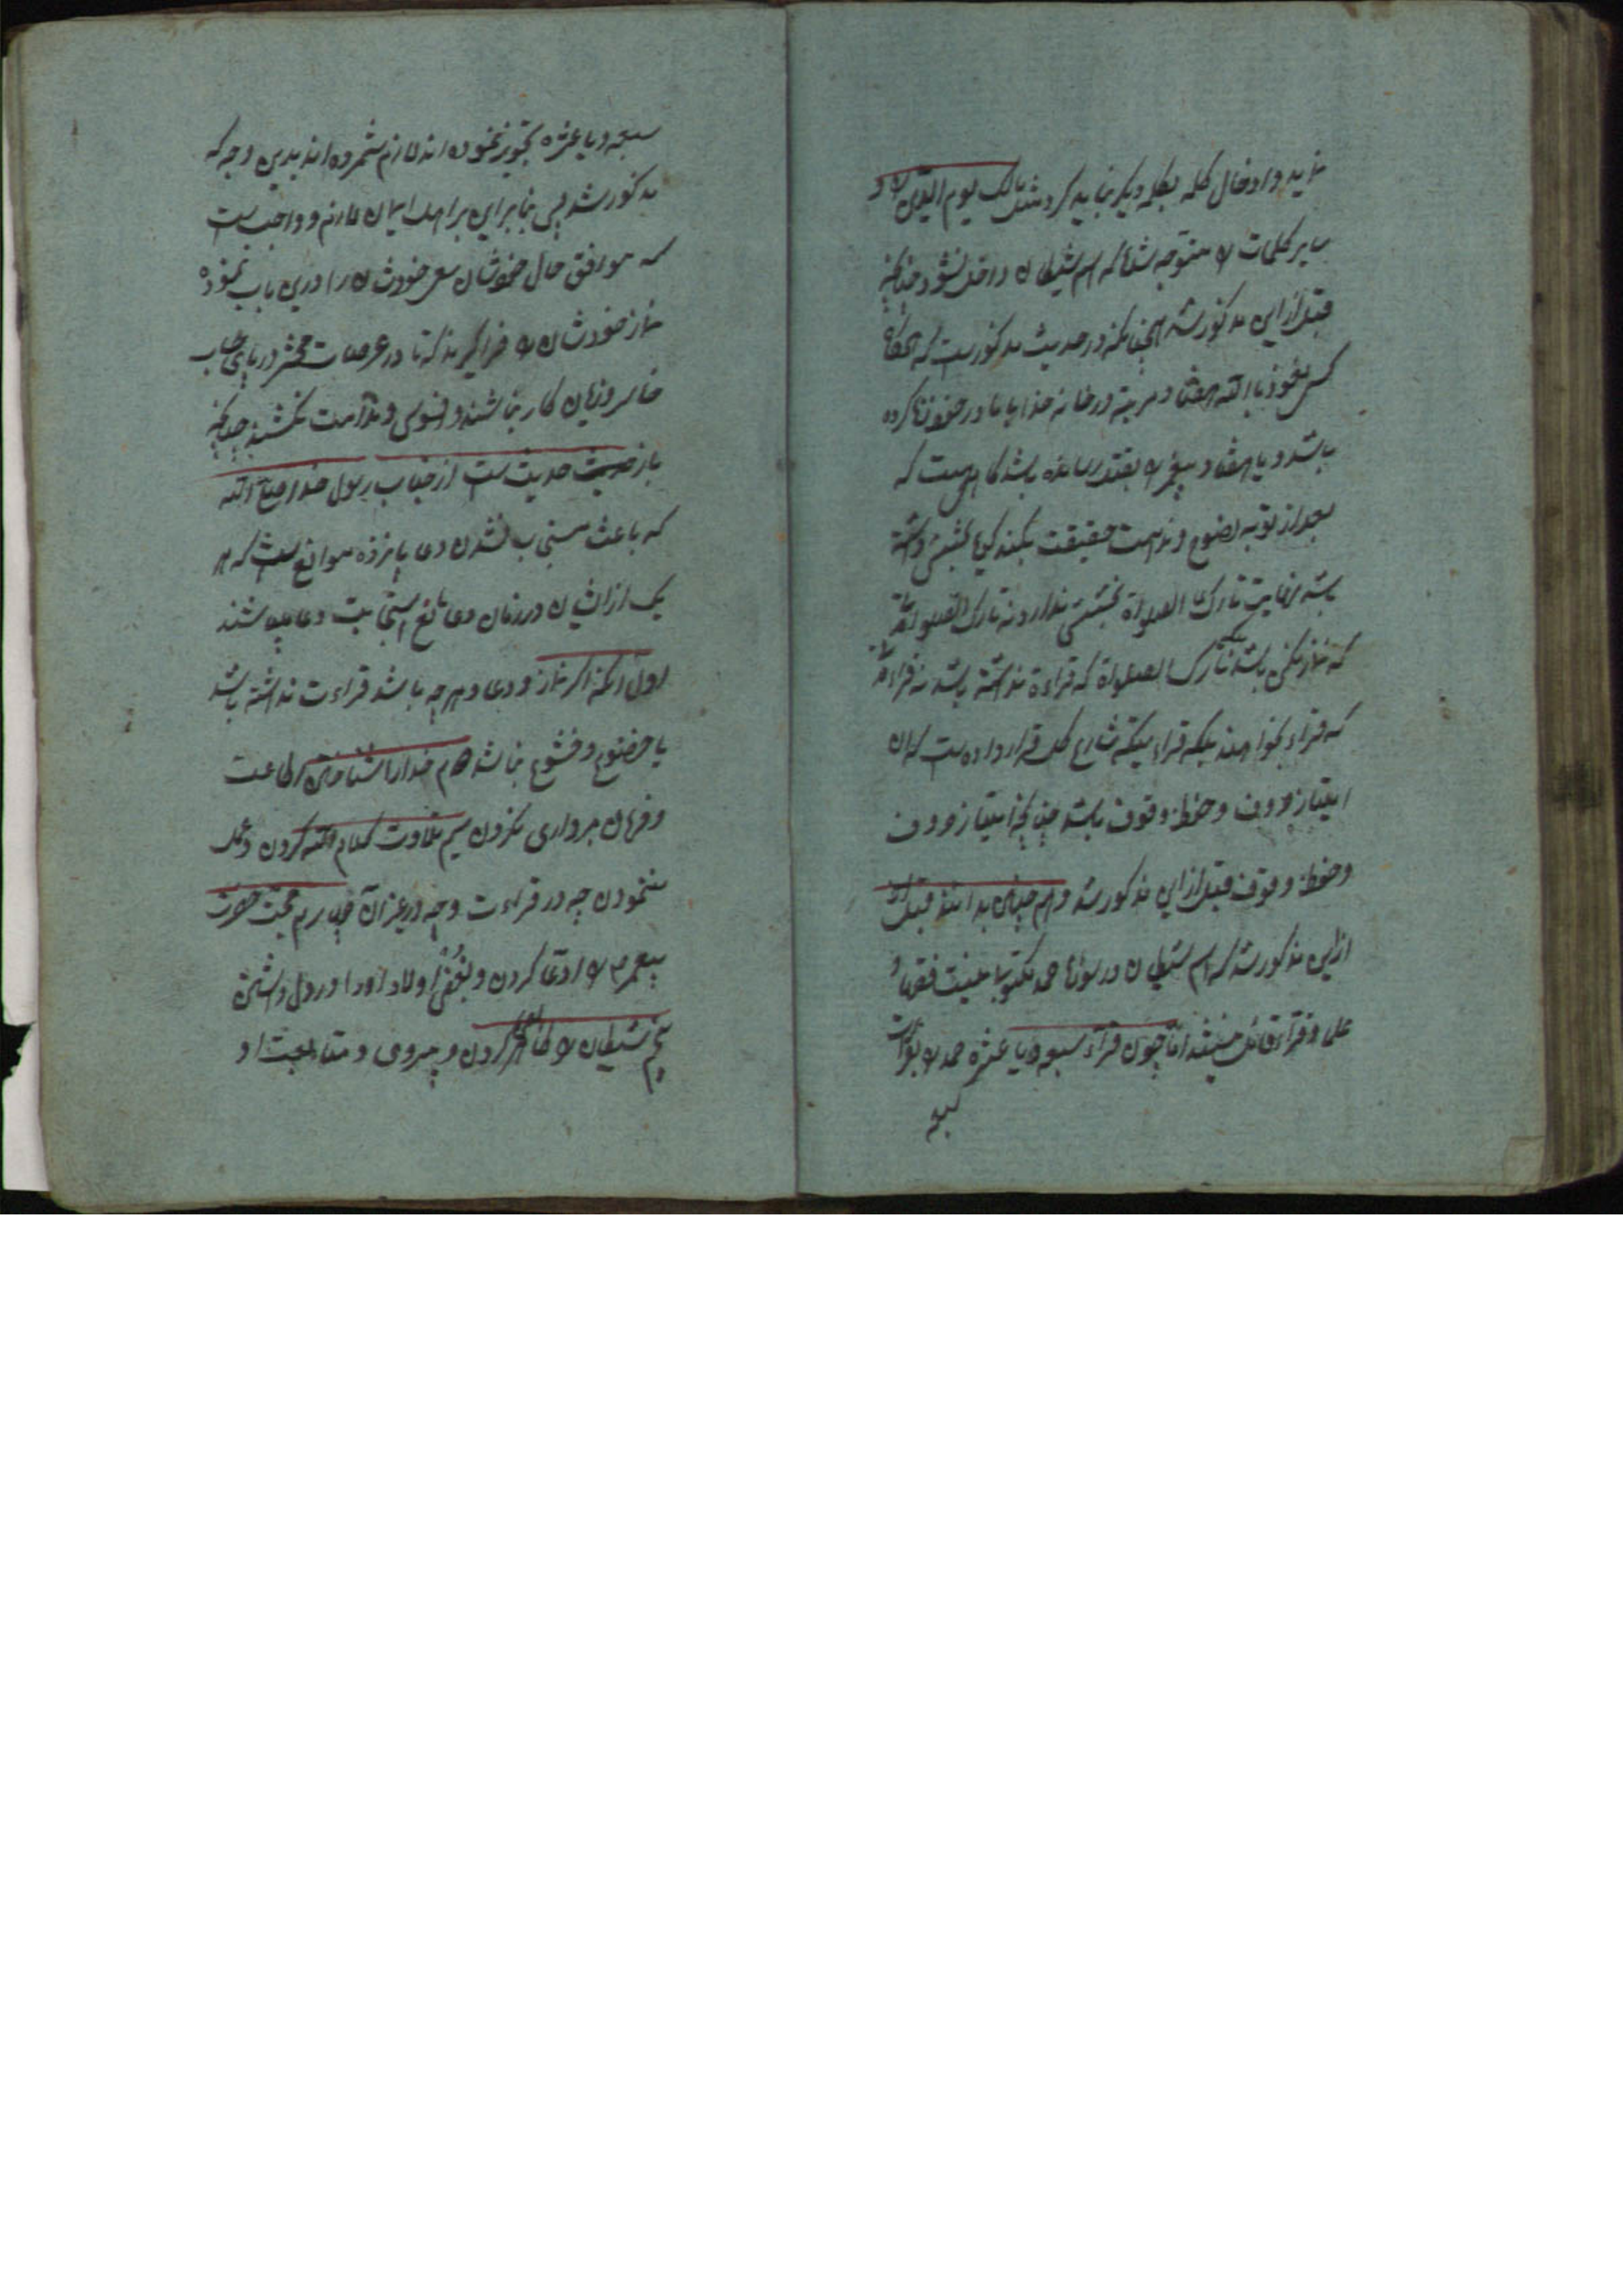 نماید و ادخال کلمه بکلمه دیگر نباید کرد مثل مالک یوم الدین را و
سایر کلمات را متوجه باشد که اسم شیطان داخل نشود چنانکه
قبل از این مذکور شد همچنانکه در حدیث مذکورست که
کسی نعوذ باالله هفتاد مرتبه در خانه خدا با مادر خود زنا کرده
باشد و یا هفتاد پیغمبر را بقتل رسانده باشد کاهست که
بعد از توبه نصوح و ندامت حقیقت بکند بخشش داشته
باشد نهایت تارک الصلوة بخشش ندارد نه تارک الصلوة
که نماز نکند باشد تارک الصلوة که قراءة نداشته باشد نه قراءة
که قراء بخوانند بلکه قراءتیکه شارع قرار داده است که آن
امتیاز حروف و حفظ وقوف باشد چنانچه امتیاز حروف
و حفظ وقوف قبل از این مذکور شد و هم چنان بدانند قبل
از این مذکور شد که اسم شیطان در سوره حمد مکتوبا نیست فقها و
علما و قراء قائل نیستند اما چون قراء سبعه و یا عشره حمد را
سبعه
سبعه و یا عشره تجویز نموده اند لازم شمرده اند بدین وجه که
مذکور شد پس بنابراین بر اهل ایمان لازم و واجب است
که موافق حال خودشان سعی خودشان را درین باب نموده
نماز خودشان را فراگیرند که تا در عرصات محشر در پای حساب
خاسر و زیان کار نباشند و افسوس و ندامت نکشند چنانکه
باز حدیث است از جناب رسول خدا صلی الله
که باعث مستجاب نشدن دعا پانزده موانع است که هر
یک از ایشان در زمان دعا مانع استجابت دعا میباشند
اول آنکه اگر نماز و دعا و هر چه باشد قراءت نداشته باشد
یا خضوع و خشوع نباشد دوم خدا را شناختن اطاعت
و فرمان برداری نکردن سیم تلاوت کلام الله کردن و عمل
ننمودن چه در قراءت و چه در غیر آن چهارم محبت حضرت
پیغمبر را ادعا کردن و بغض اولاد او را در دل داشتن
پنجم شیطان را لعن کردن و پیروی و متابعت او